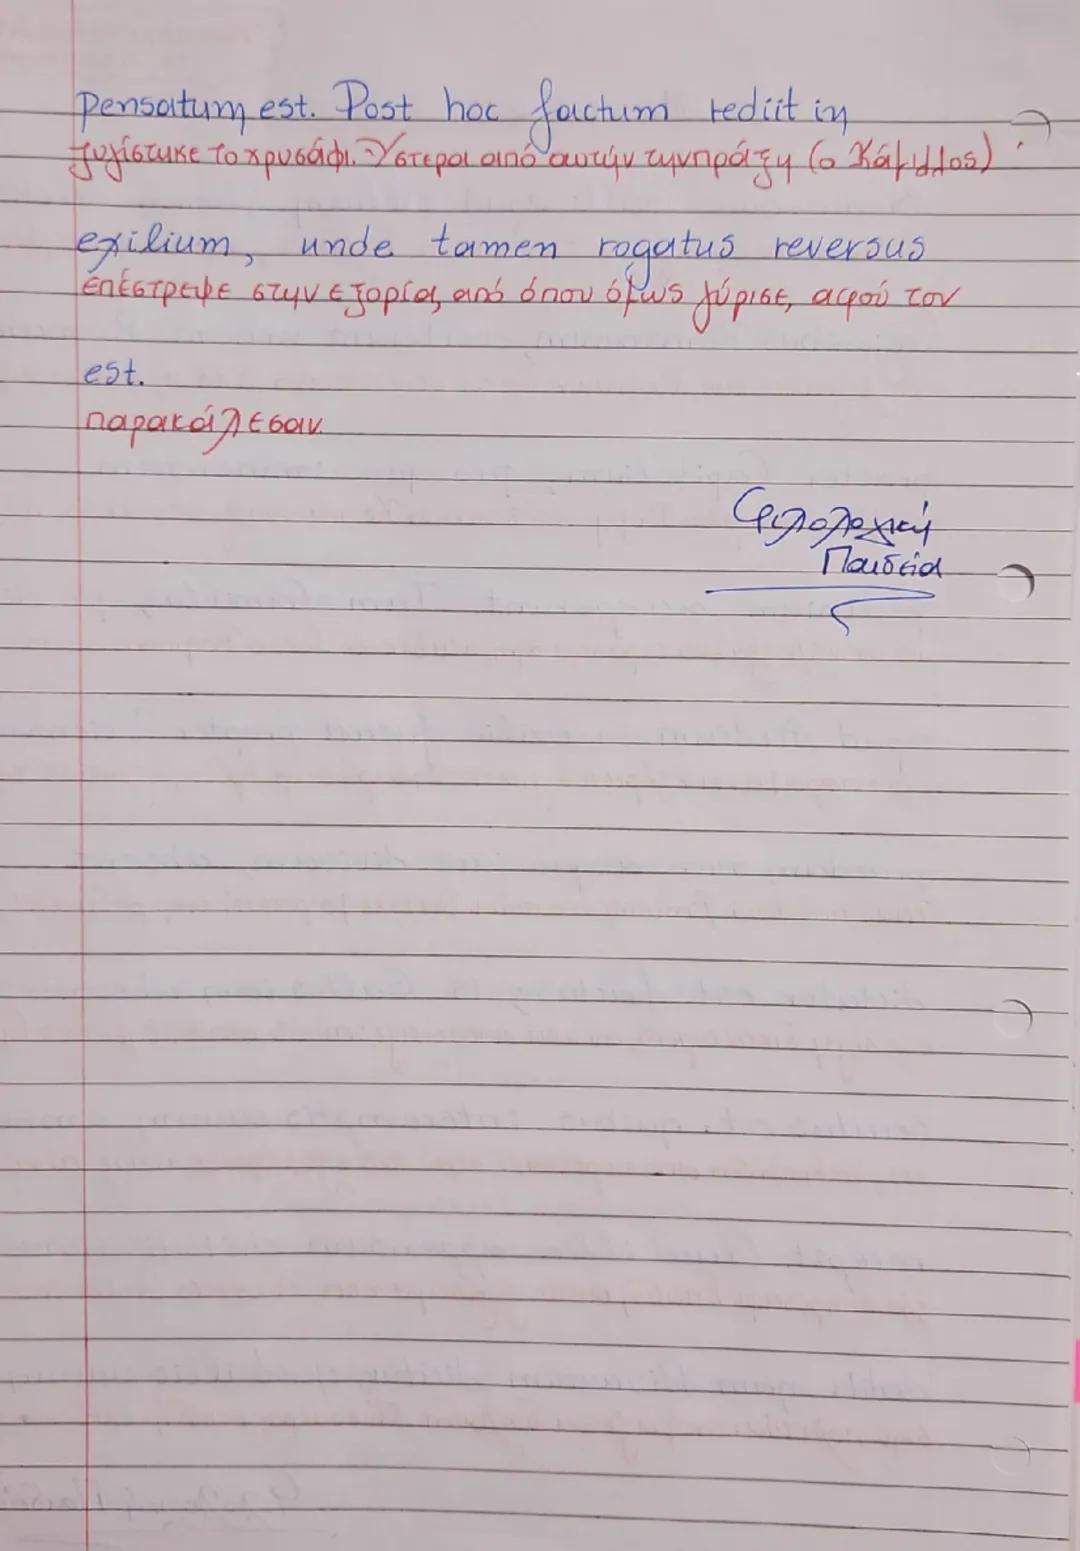 pensatum est. Post hoc factum rediit in
ζυγίστηκε το χρυσάφι. Ύστερα από αυτήν την πράξη (ο Κάμιλλος)
exilium, unde tamen rogatus reversus
επέστρεψε στην εξορία, από όπου όμως γύρισε, αφού τον
est.
παρακάλεσαν.
Φιλολογική
Παιδεία